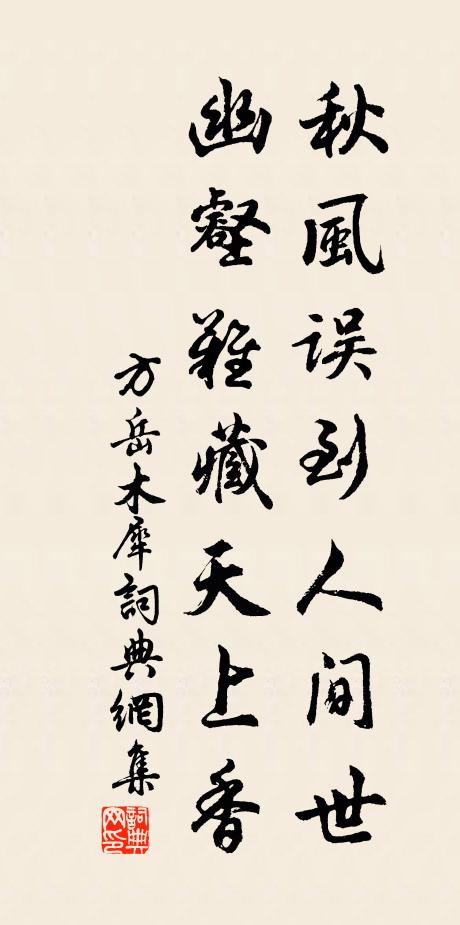 秋風误到人间世
幽壑難藏天上香
方岳木犀詞典網集
詞典网印